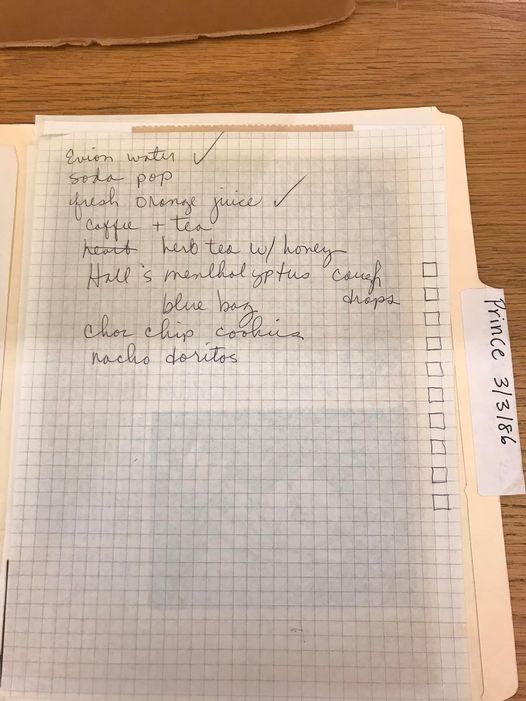 Evion water ✓
soda pop
fresh orange juice ✓
coffie + tea
heart herb tea w/ honey
Hall's mentholyptus cough
drops
blue bag
choc chip cookies
nacho doritos
Prince 3/3/86